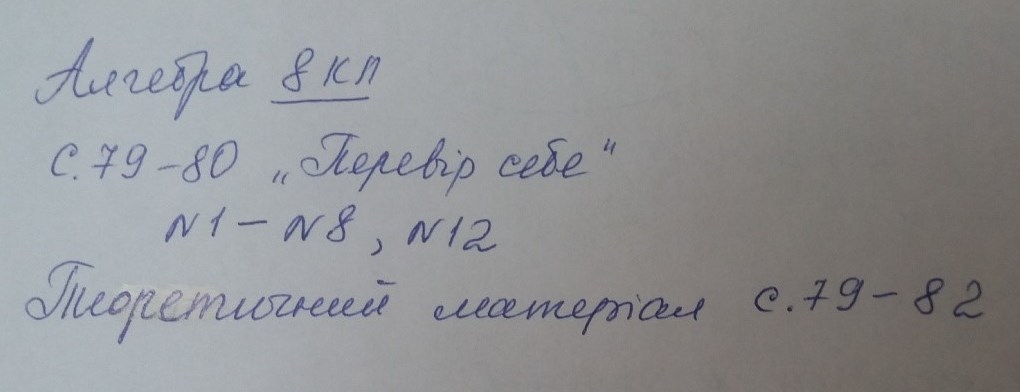 Алгебра 8 кл
С. 79-80 „Перевір себе"
N1 - N8, N12
Теоретичний матеріал с. 79-82